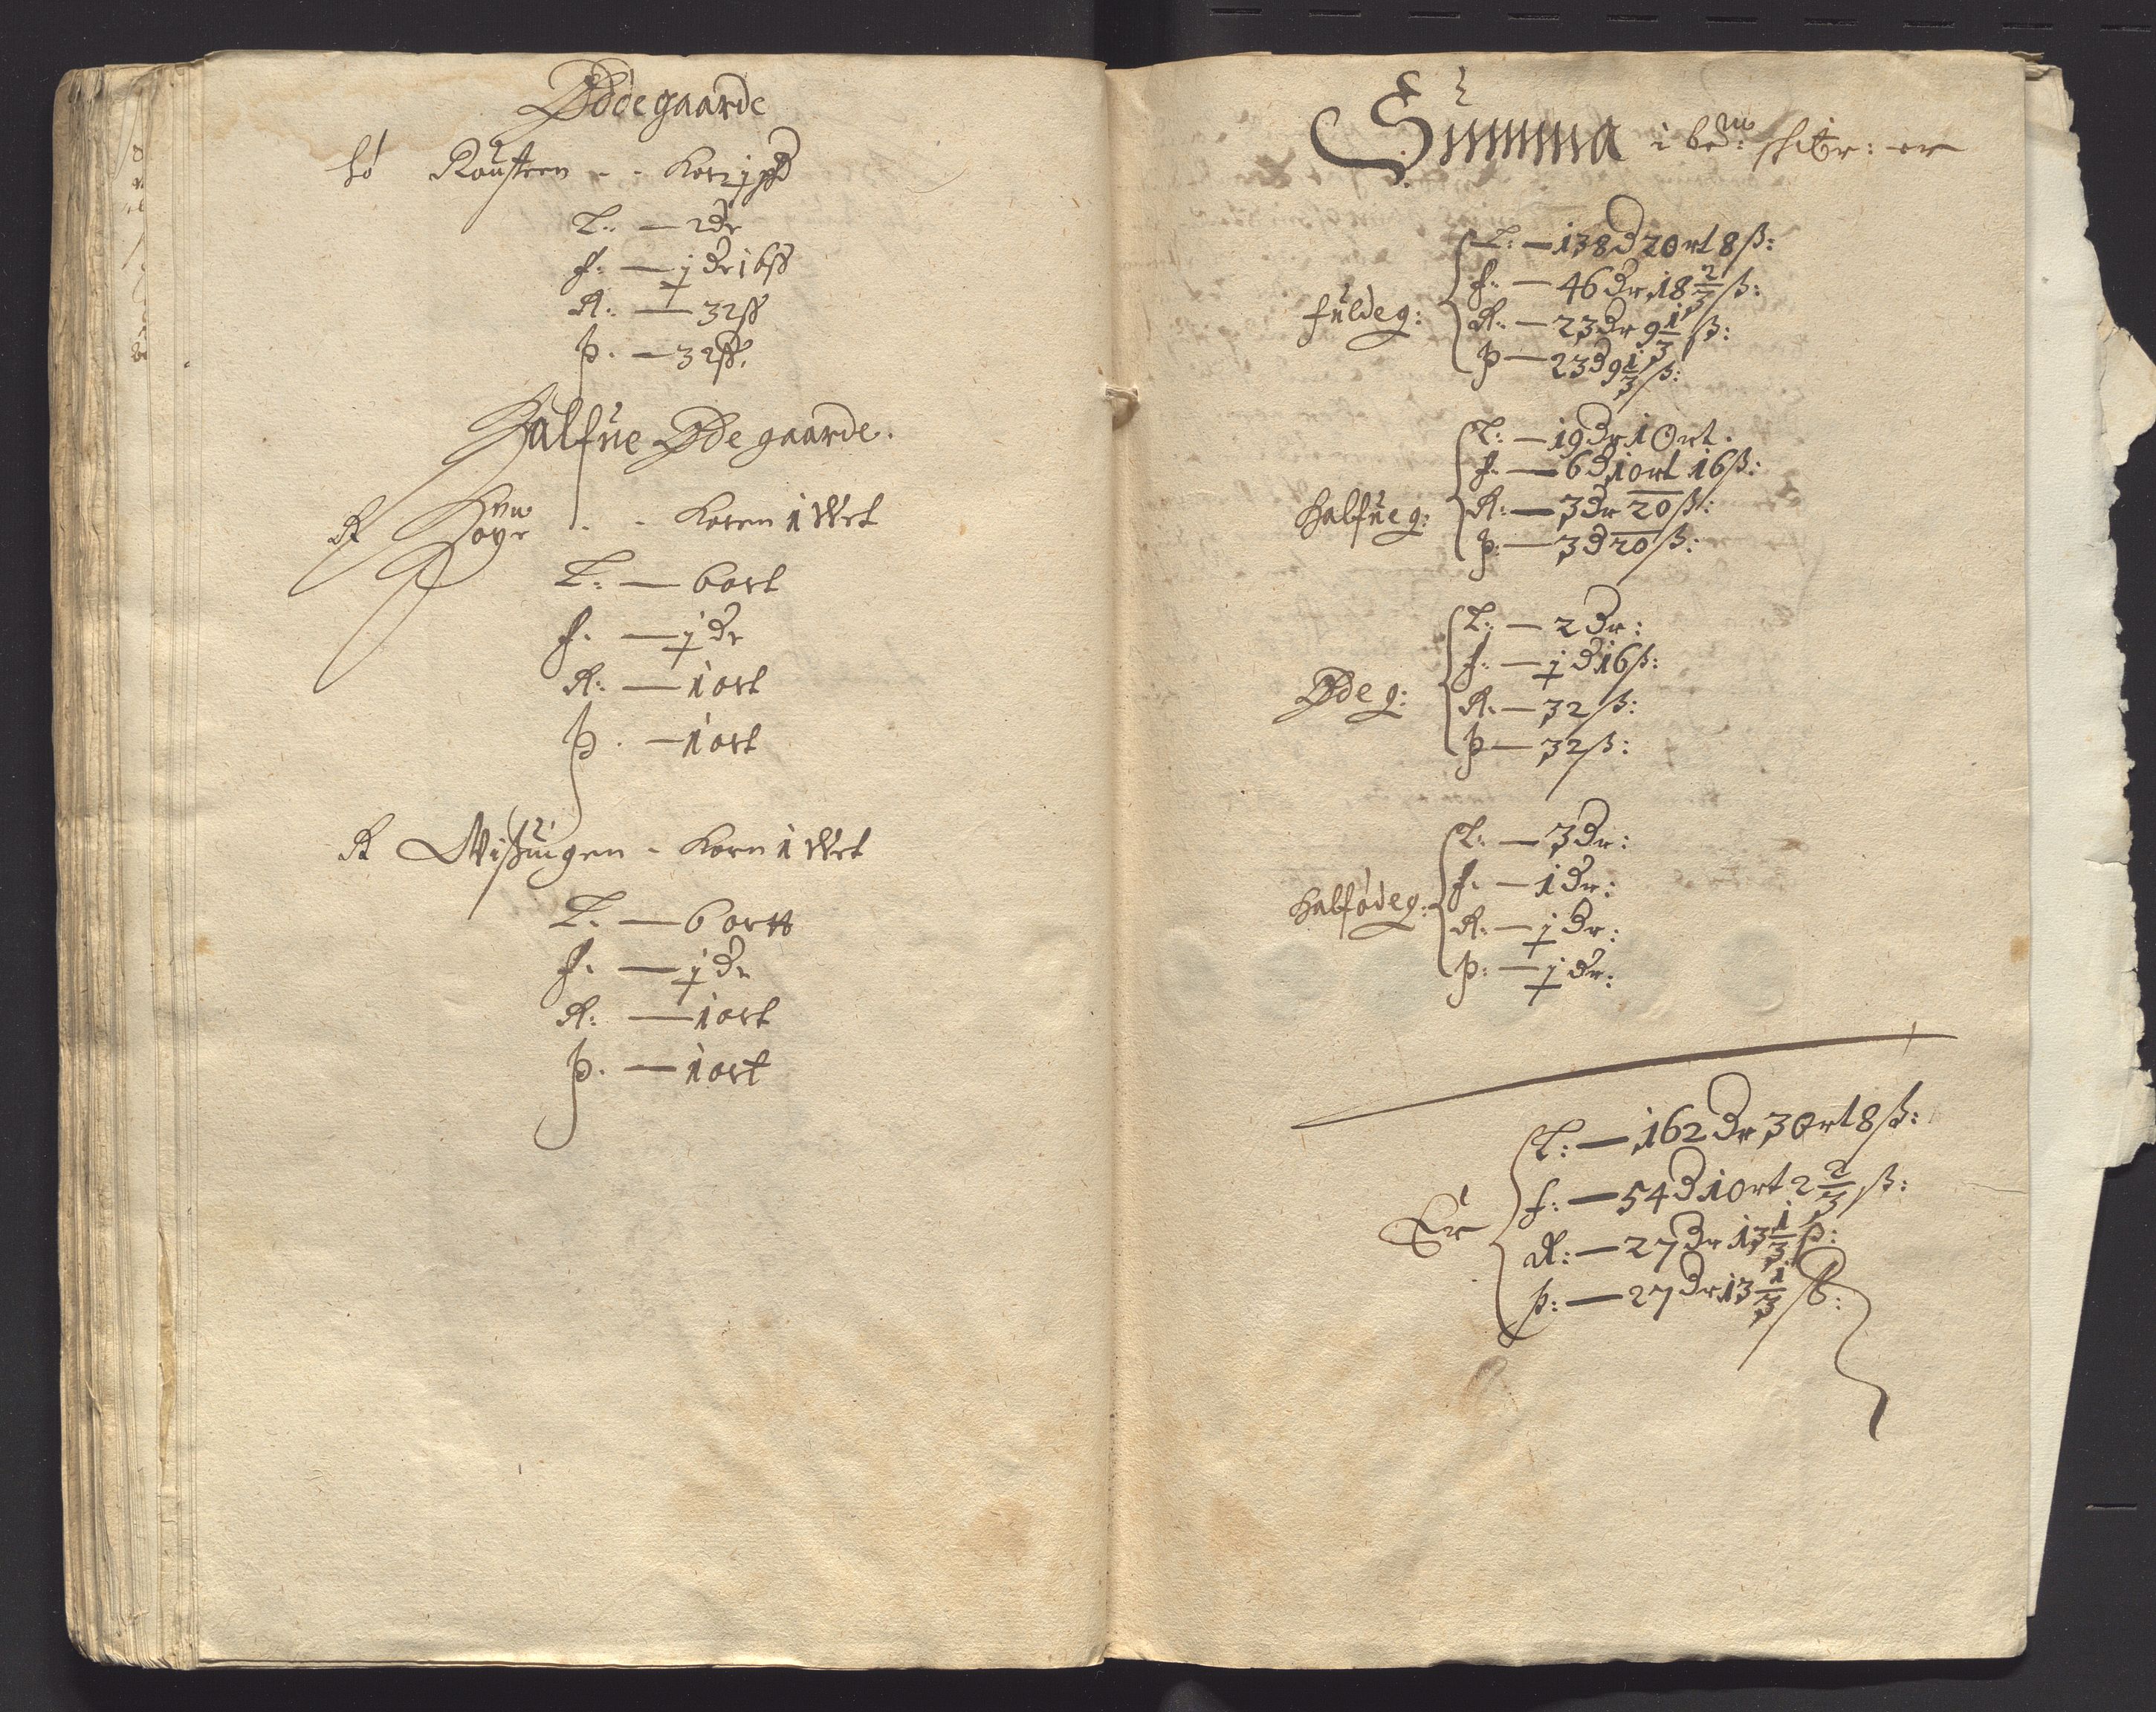 Ødegaarde
Røusteen - - Korn j pd
L: — 2 dr
f. — j dr 16 ß
R: — 32 ß
þ. — 32 ß.
Halfue Ødegaarde.
R Høyr - - Koren 1 Vet
L: — 6 ort
f. — j dr
R: — 1 ort
þ. — 1 ort
R Wißingen - Korn 1 Vet
L. — 6 ort
f. — j dr
R: — 1 ort
þ. — 1 ort
Summa i bem: schibr: er
fuldeg:
L: — 138 d 2 Ort 8 ß:
f. — 46 dr 18 2/3 ß:
R. — 23 dr 9 1/3 ß:
þ — 23 d 9 1/3 ß:
halfueg:
L: — 19 dr 1 Ort.
f. — 6 d 1 ort 16 ß:
R. — 3 dr 20 ß:
þ: — 3 d 20 ß:
Ødeg:
L: — 2 dr:
f. — j d 16 ß:
R. — 32 ß:
þ — 32 ß:
halfødeg:
L: — 3 dr:
f. — 1 dr:
R. — j dr:
þ: — j dr:
Er
L: — 162 dr 3 Ort 8 ß:
f: — 54 d 1 Ort 2 2/3 ß:
R: — 27 dr 13 1/3 ß:
þ: — 27 dr 13 1/3 ß: